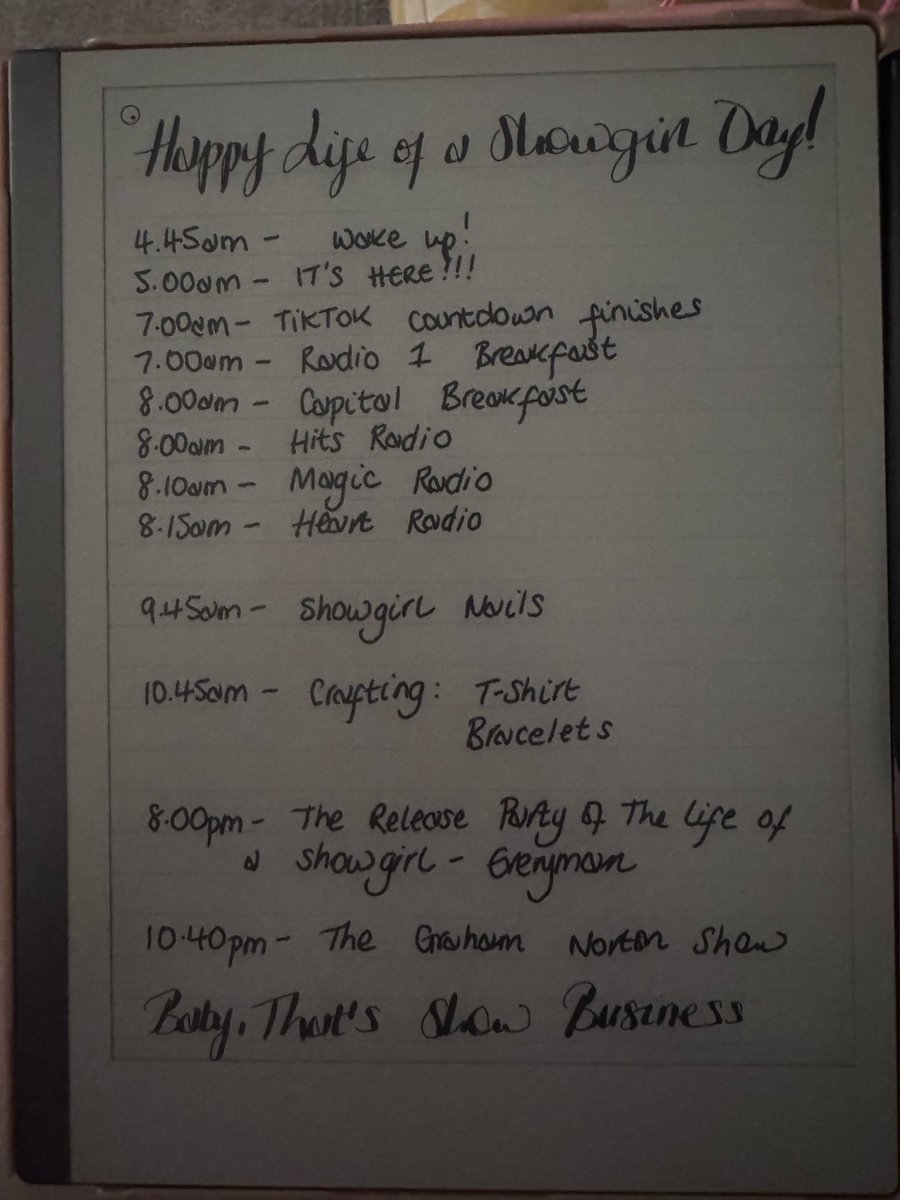 Happy Life of a Showgirl Day!
4.45am - wake up!
5.00am - IT'S HERE!!!
7.00am - TIKTOK countdown finishes
7.00am - Radio 1 Breakfast
8.00am - Capital Breakfast
8.00am - Hits Radio
8.10am - Magic Radio
8.15am - Heart Radio
9.45am - Showgirl Nails
10.45am - Crafting: T-Shirt
Bracelets
8.00pm - The Release Party of The Life of
a Showgirl - Everyman
10.40pm - The Graham Norton Show
Baby, That's Show Business